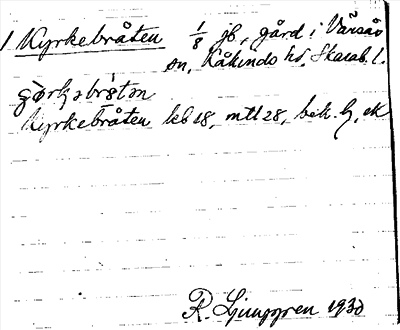 1 Kyrkebråten 1/8 jb, gård i Värsås
sn, Kåkinds hd, Skarab. l.
Kyrkebråten kb 18, mtl 28, bek. G, ek
R. Ljunggren 1930